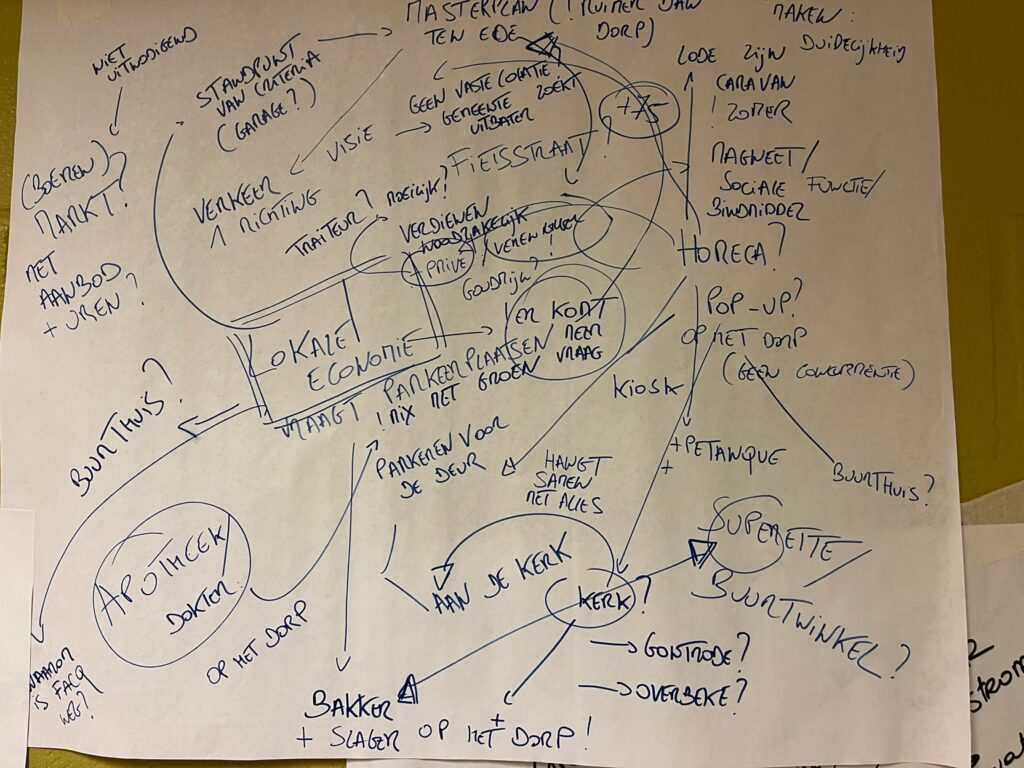 MASTERPLAN (! RUIMER DAN
TEN EDE DORP)
MAKEN :
DUIDELIJKHEID
NIET
UITNODIGEND
STANDPUNT
VAN CRITERIA
(GARAGE?)
VISIE
GEEN VASTE LOCATIE!
GEMEENTE ZOEKT
UITBATER
+75
LODE ZIJN
CARAVAN
! ZOMER
MAGNEET/
SOCIALE FUNCTIE/
BINDMIDDEL
FIETSSTRAAT?
(BOEREN)
MARKT?
MET
AANBOD
+ UREN?
VERKEER
1 RICHTING
TRAITEUR?
MOEILIJK?
VERDIENEN
NOODZAKELIJK
+ PRIVE
GOUDRIJN?
HORECA?
POP-UP?
OP HET DORP
(GEEN CONCURRENTIE)
LOKALE
ECONOMIE
ER KOMT
MEER
VRAAG
VRAAGT PARKEERPLAATSEN/
! MIX MET GROEN
KIOSK
+PETANQUE
+
BUURTHUIS?
BUURTHUIS?
PARKEREN VOOR
DE DEUR
HANGT
SAMEN
MET ALLES
APOTHEEK/
DOKTER
OP HET DORP
AAN DE KERK
KERK?
SUPERETTE/
BUURTWINKEL?
WAAROM
IS FACQ
WEG?
GONTRODE?
OVERBEKE?
BAKKER
+ SLAGER OP HET DORP!
+
strom